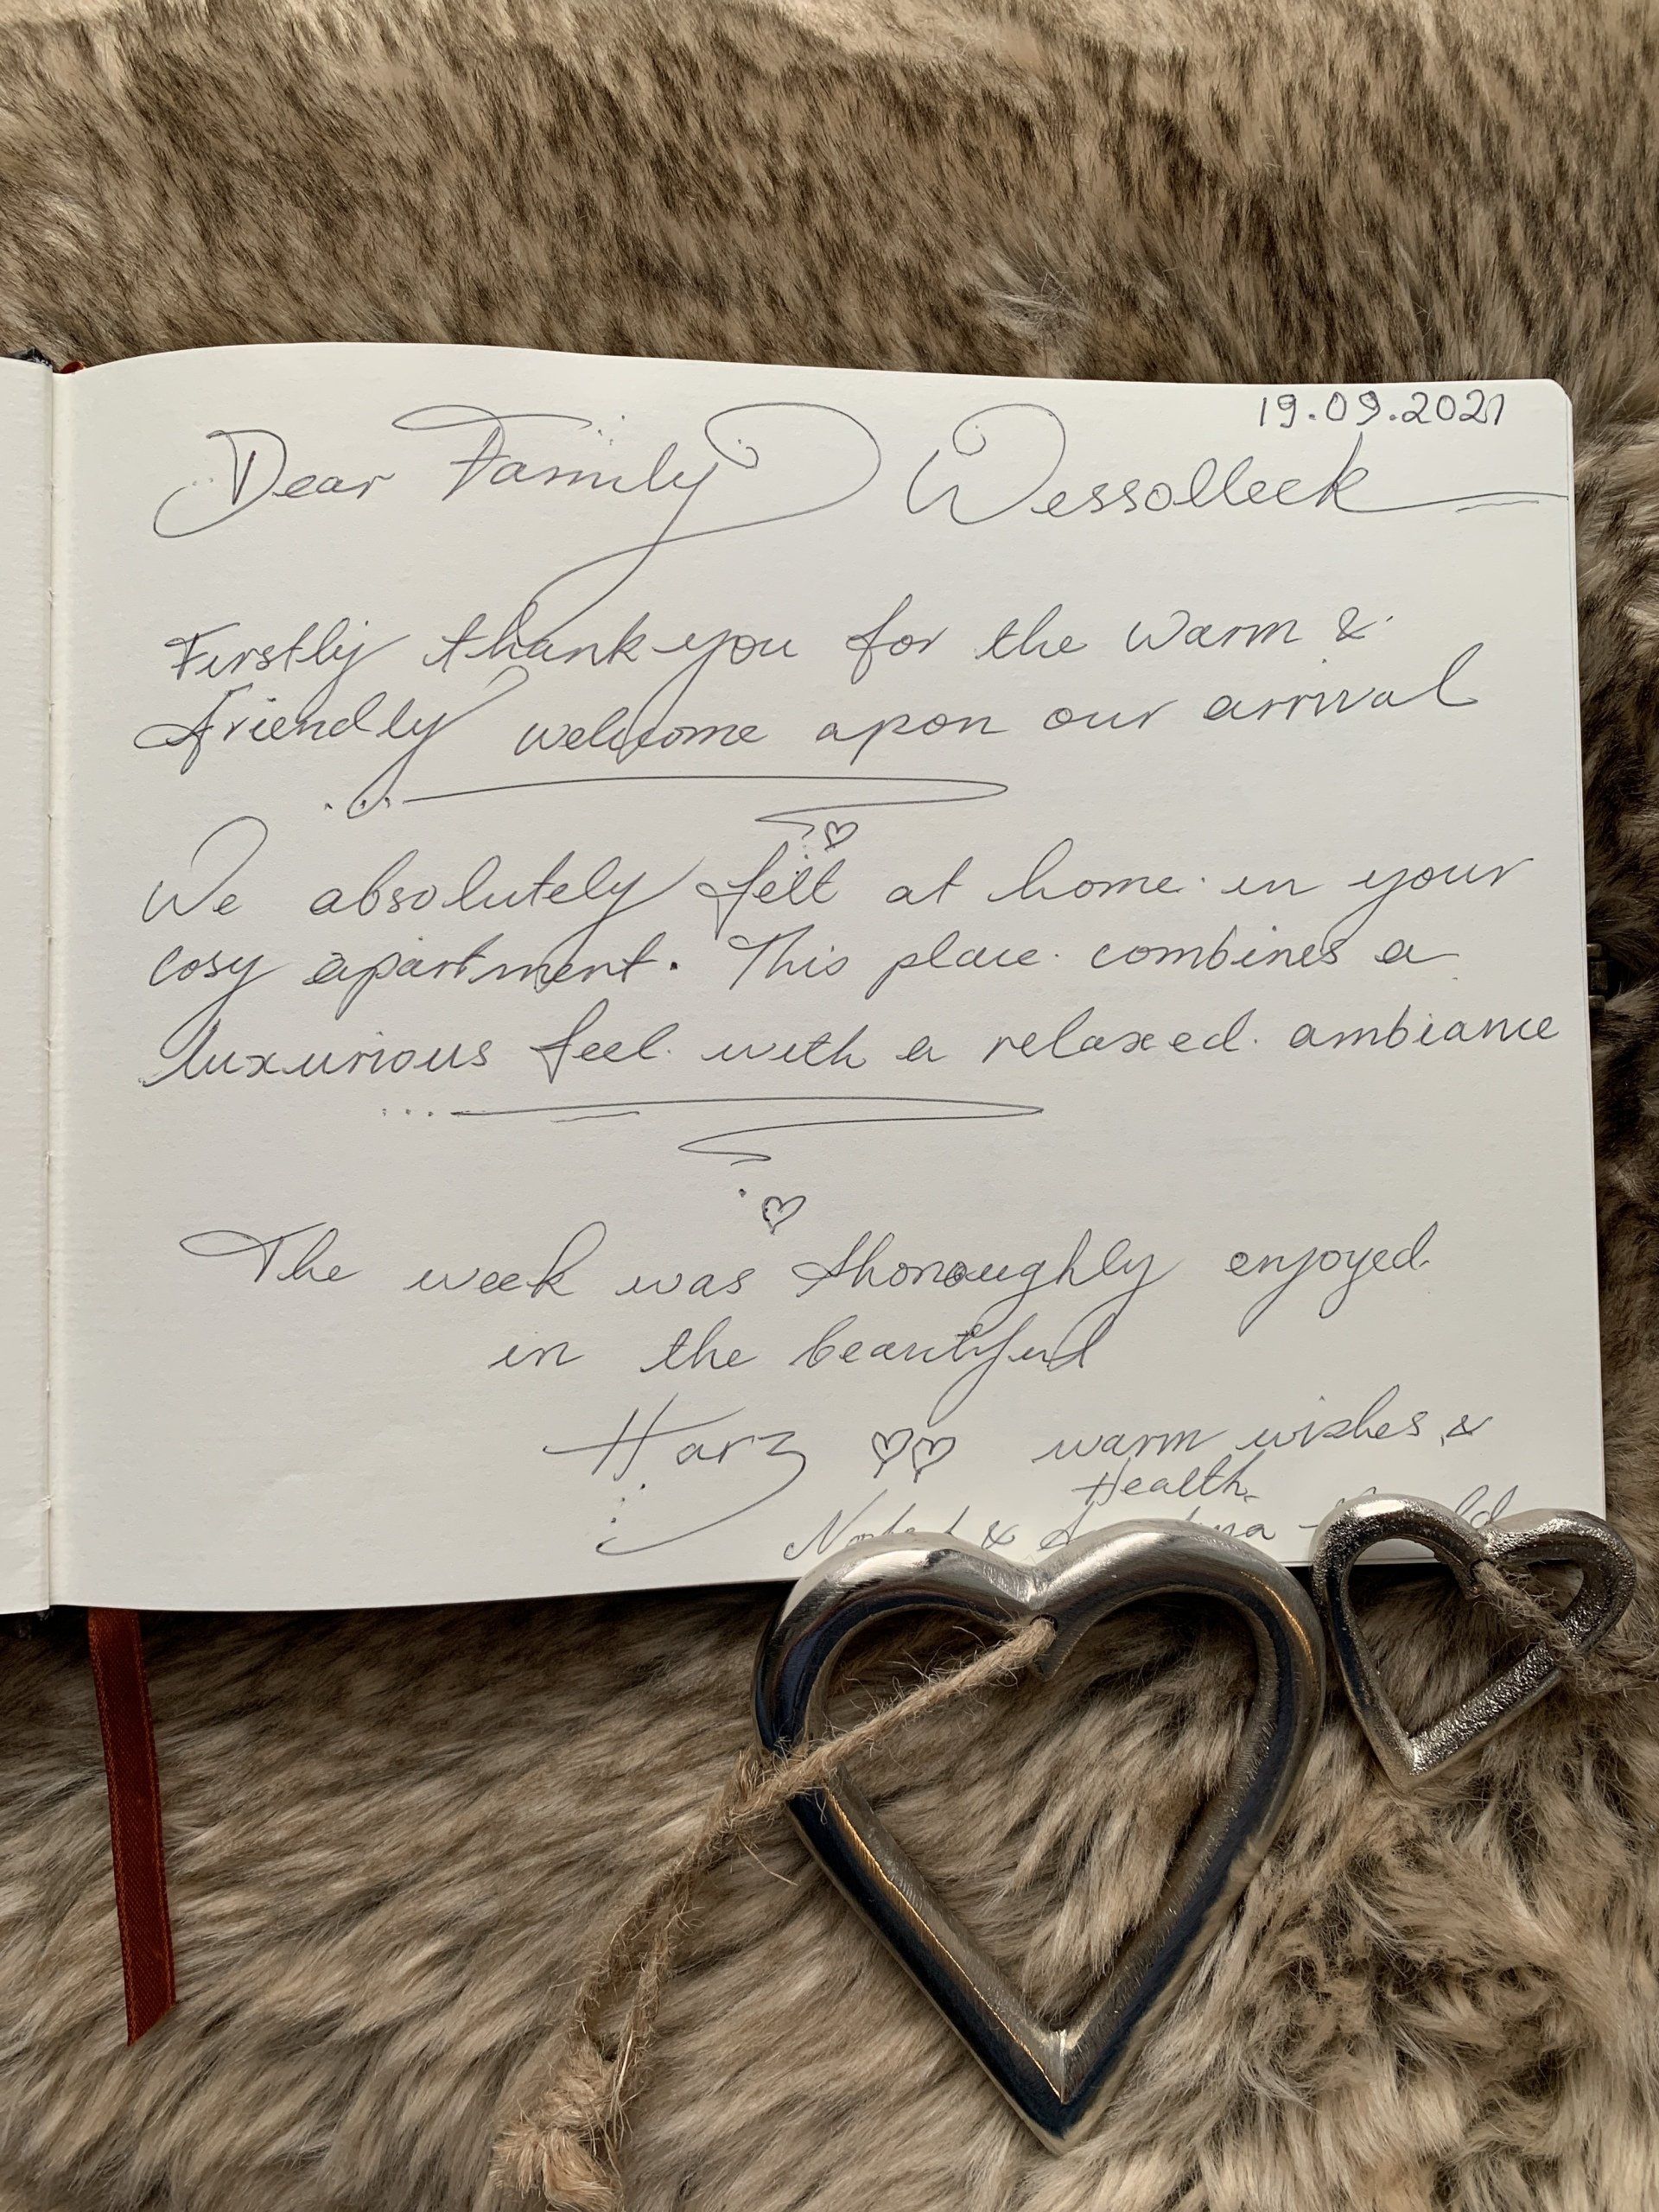 19.09.2021
Dear Family Wessolleck
Firstly thank you for the warm &
friendly welcome apon our arrival
We absolutely felt at home in your
cosy apartment. This place combines a
luxurious feel with a relaxed ambiance
The week was thoroughly enjoyed
in the beautiful
Harz warm wishes &
Health
&